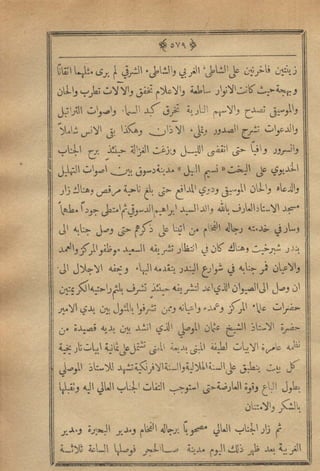 ﴿ ٥٧٩ ﴾
زينتين فاخرتين على الشاطئ الغربي والشاطئ الشرقي لم يرى مثلهما اتقانًا
وبهجة حيث كانت الانوار ساطعة والاعلام تخفق والآلات تطرب والحان
والموسيقى تصدح والاسهم النارية تخرق كبد السماء واصوات التراتيل
والدعوات تشرح الصدور وتملأ الآذان وهكذا بقي الانس شاملاً
والسرور وافيًا حتى انقضى الليل وبزغت الغزالة حينئذٍ برح الجناب
الخديوي على اليخت «نسيم النيل» مدينة دسوق بين اصوات التهليل
والدعاء والحان الموسيقى ودوي المدافع حتى بلغ ناحية مرقص وهناك زار
مسجد الاستاذ العارف بالله والد السيد ابراهيم الدسوقي ثم امتطى جوادًا مطهمًا
وسار في خدمته رجاله الفخام من اتينا على ذكرهم حتى وصل جنابه الى
بندر شبرخيت وهناك كان في انتظار تشريفه السعيد موظفو المركز والعمد
والاعيان فمر جنابه في شوارع البندر يتقدمه البهاء ويحفه الاجلال الى
ان وصل الى الصيوان الذي اعد لتشريفه حينئذٍ تشرف بلثم راحتيه الكريمتين
حضرات علماء المركز وعمده واعيانه وممن تشرفوا بالمثول بين يدي الامير
حضرة الاستاذ الشيخ عثمان الموصلي الذي انشد بين يديه قصيدة من
نظمه عامرة الابيات لطيفة المبنى بديعة المعنى تشتمل على ثمانية ابيات تاريخية
كل بيت ينطبق على السنة الهلالية والسنة الافرنكية تشهد للاستاذ الموصلي
بطول الباع وقوة العارضة حتى استوجب التفات الجناب العالي اليه وتقبلها
بالشكر والامتنان
ثم زار الجناب العالي مصحوبًا برجاله الفخام ومدير البحيرة ومدير
الغربية بعد ظهر ذلك اليوم مدينة صا الحجر فوصلها الساعة ثلاثة